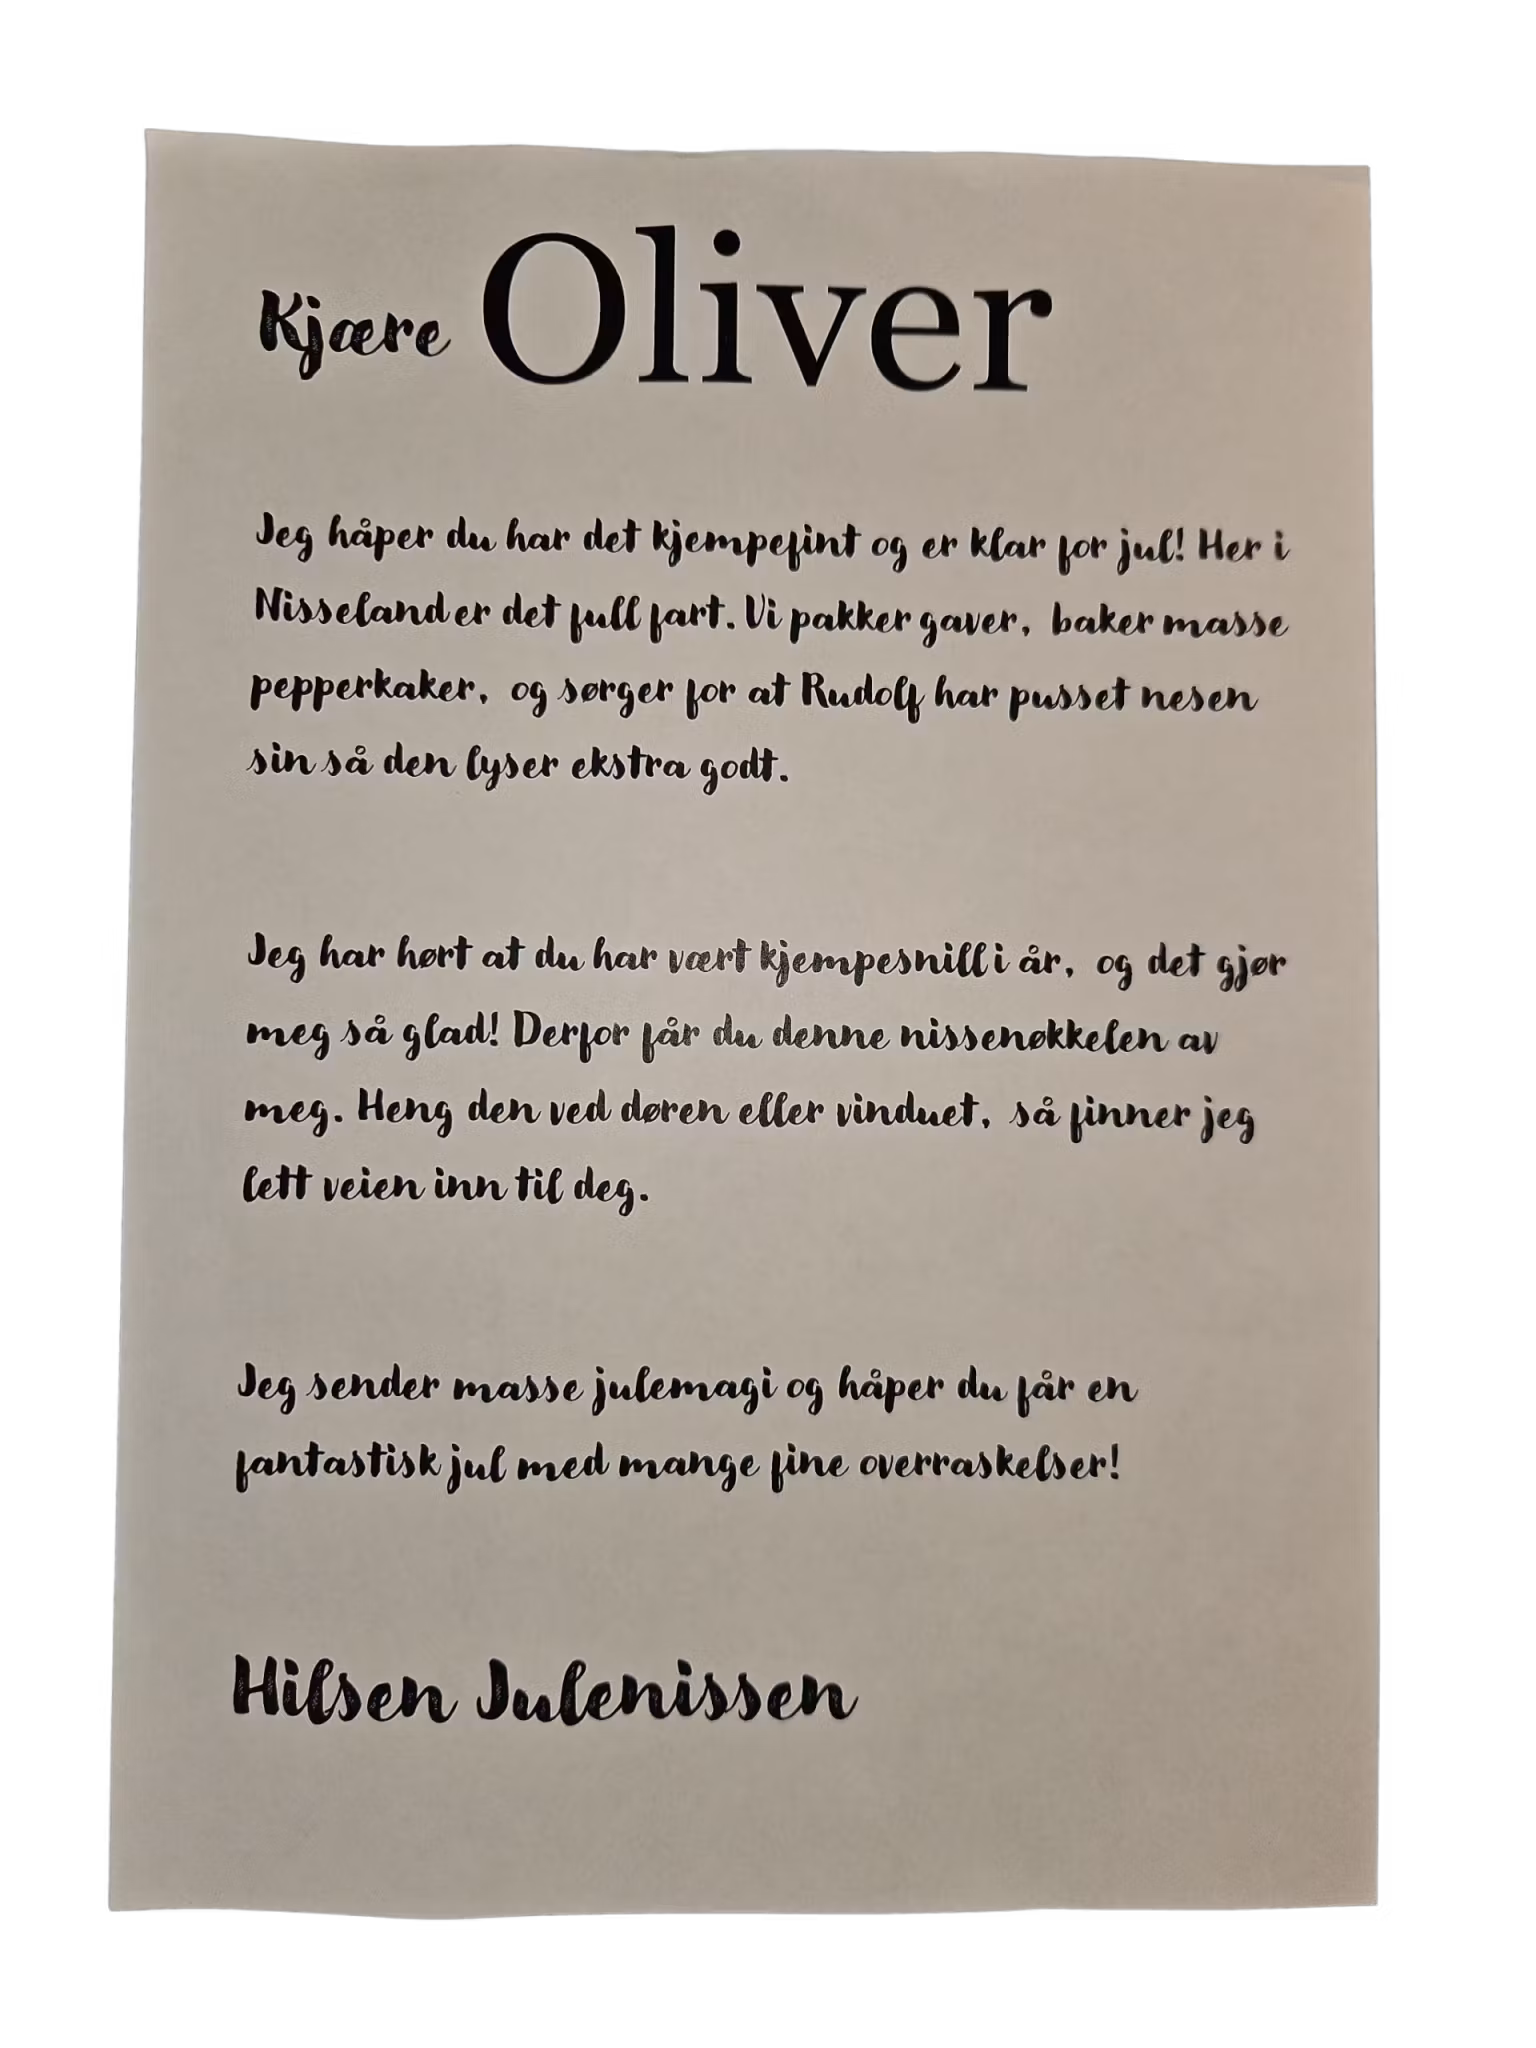 Kjære Oliver
Jeg håper du har det kjempefint og er klar for jul! Her i
Nisseland er det full fart. Vi pakker gaver, baker masse
pepperkaker, og sørger for at Rudolf har pusset nesen
sin så den lyser ekstra godt.
Jeg har hørt at du har vært kjempesnill i år, og det gjør
meg så glad! Derfor får du denne nissenøkkelen av
meg. Heng den ved døren eller vinduet, så finner jeg
lett veien inn til deg.
Jeg sender masse julemagi og håper du får en
fantastisk jul med mange fine overraskelser!
Hilsen Julenissen